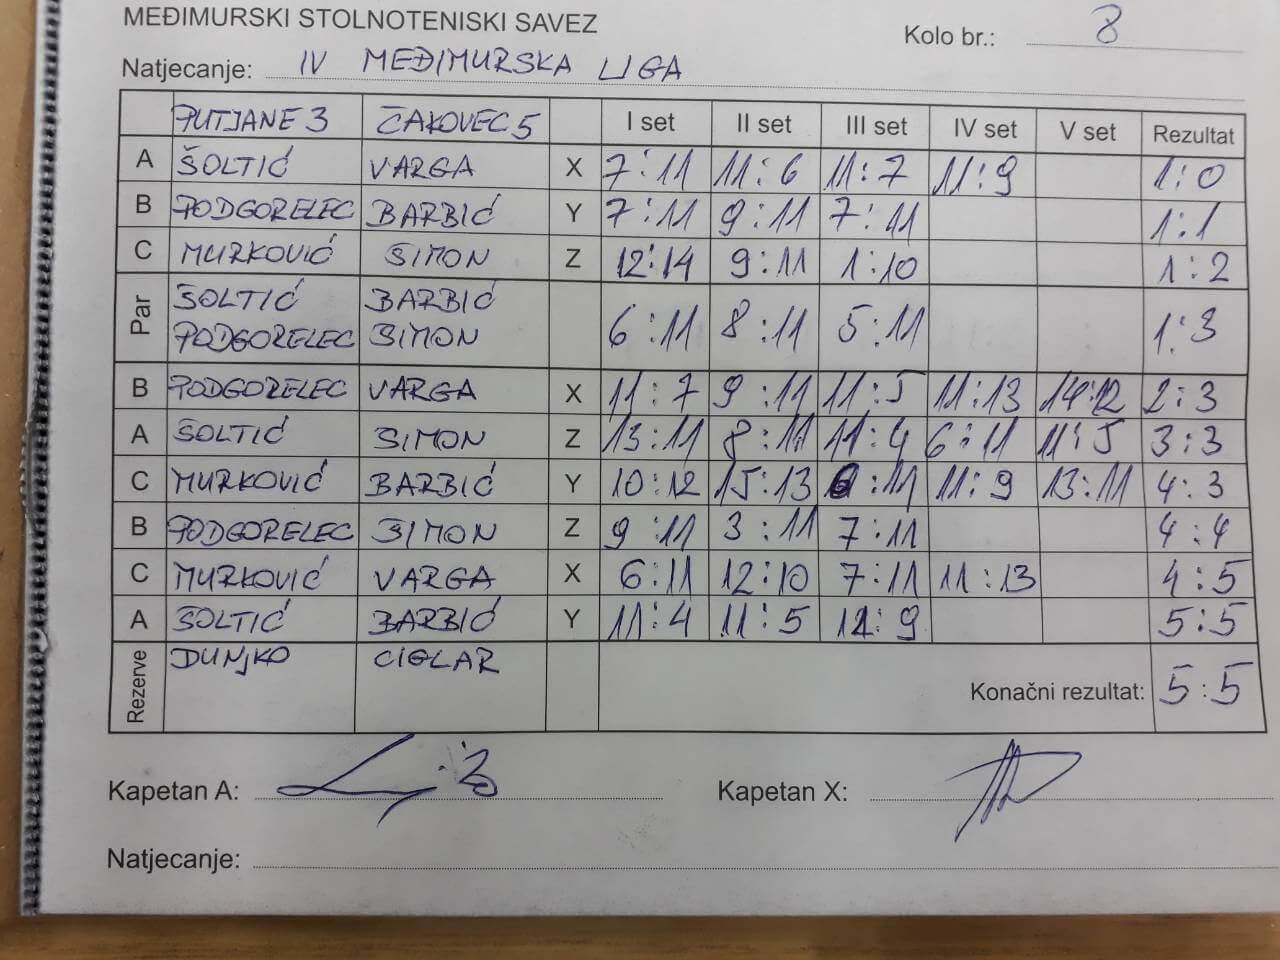 MEĐIMURSKI STOLNOTENISKI SAVEZ
Kolo br.: 8
Natjecanje: IV MEĐIMURSKA LIGA
PUTJANE 3 ČAKOVEC 5 I set II set III set IV set V set Rezultat
A ŠOLTIĆ VARGA X 7:11 11:6 11:7 11:9 1:0
B PODGORELEC BARBIĆ Y 7:11 9:11 7:11 1:1
C MURKOVIĆ SIMON Z 12:14 9:11 1:10 1:2
Par ŠOLTIĆ BARBIĆ
PODGORELEC SIMON 6:11 8:11 5:11 1:3
B PODGORELEC VARGA X 11:7 9:11 11:5 11:13 14:12 2:3
A ŠOLTIĆ SIMON Z 13:11 8:11 11:4 6:11 11:5 3:3
C MURKOVIĆ BARBIĆ Y 10:12 15:13 :11 11:9 13:11 4:3
B PODGORELEC SIMON Z 9:11 3:11 7:11 4:4
C MURKOVIĆ VARGA X 6:11 12:10 7:11 11:13 4:5
A ŠOLTIĆ BARBIĆ Y 11:4 11:5 12:9 5:5
Rezerve DUNJKO CIGLAR
Konačni rezultat: 5:5
Kapetan A: Kapetan X:
Natjecanje: